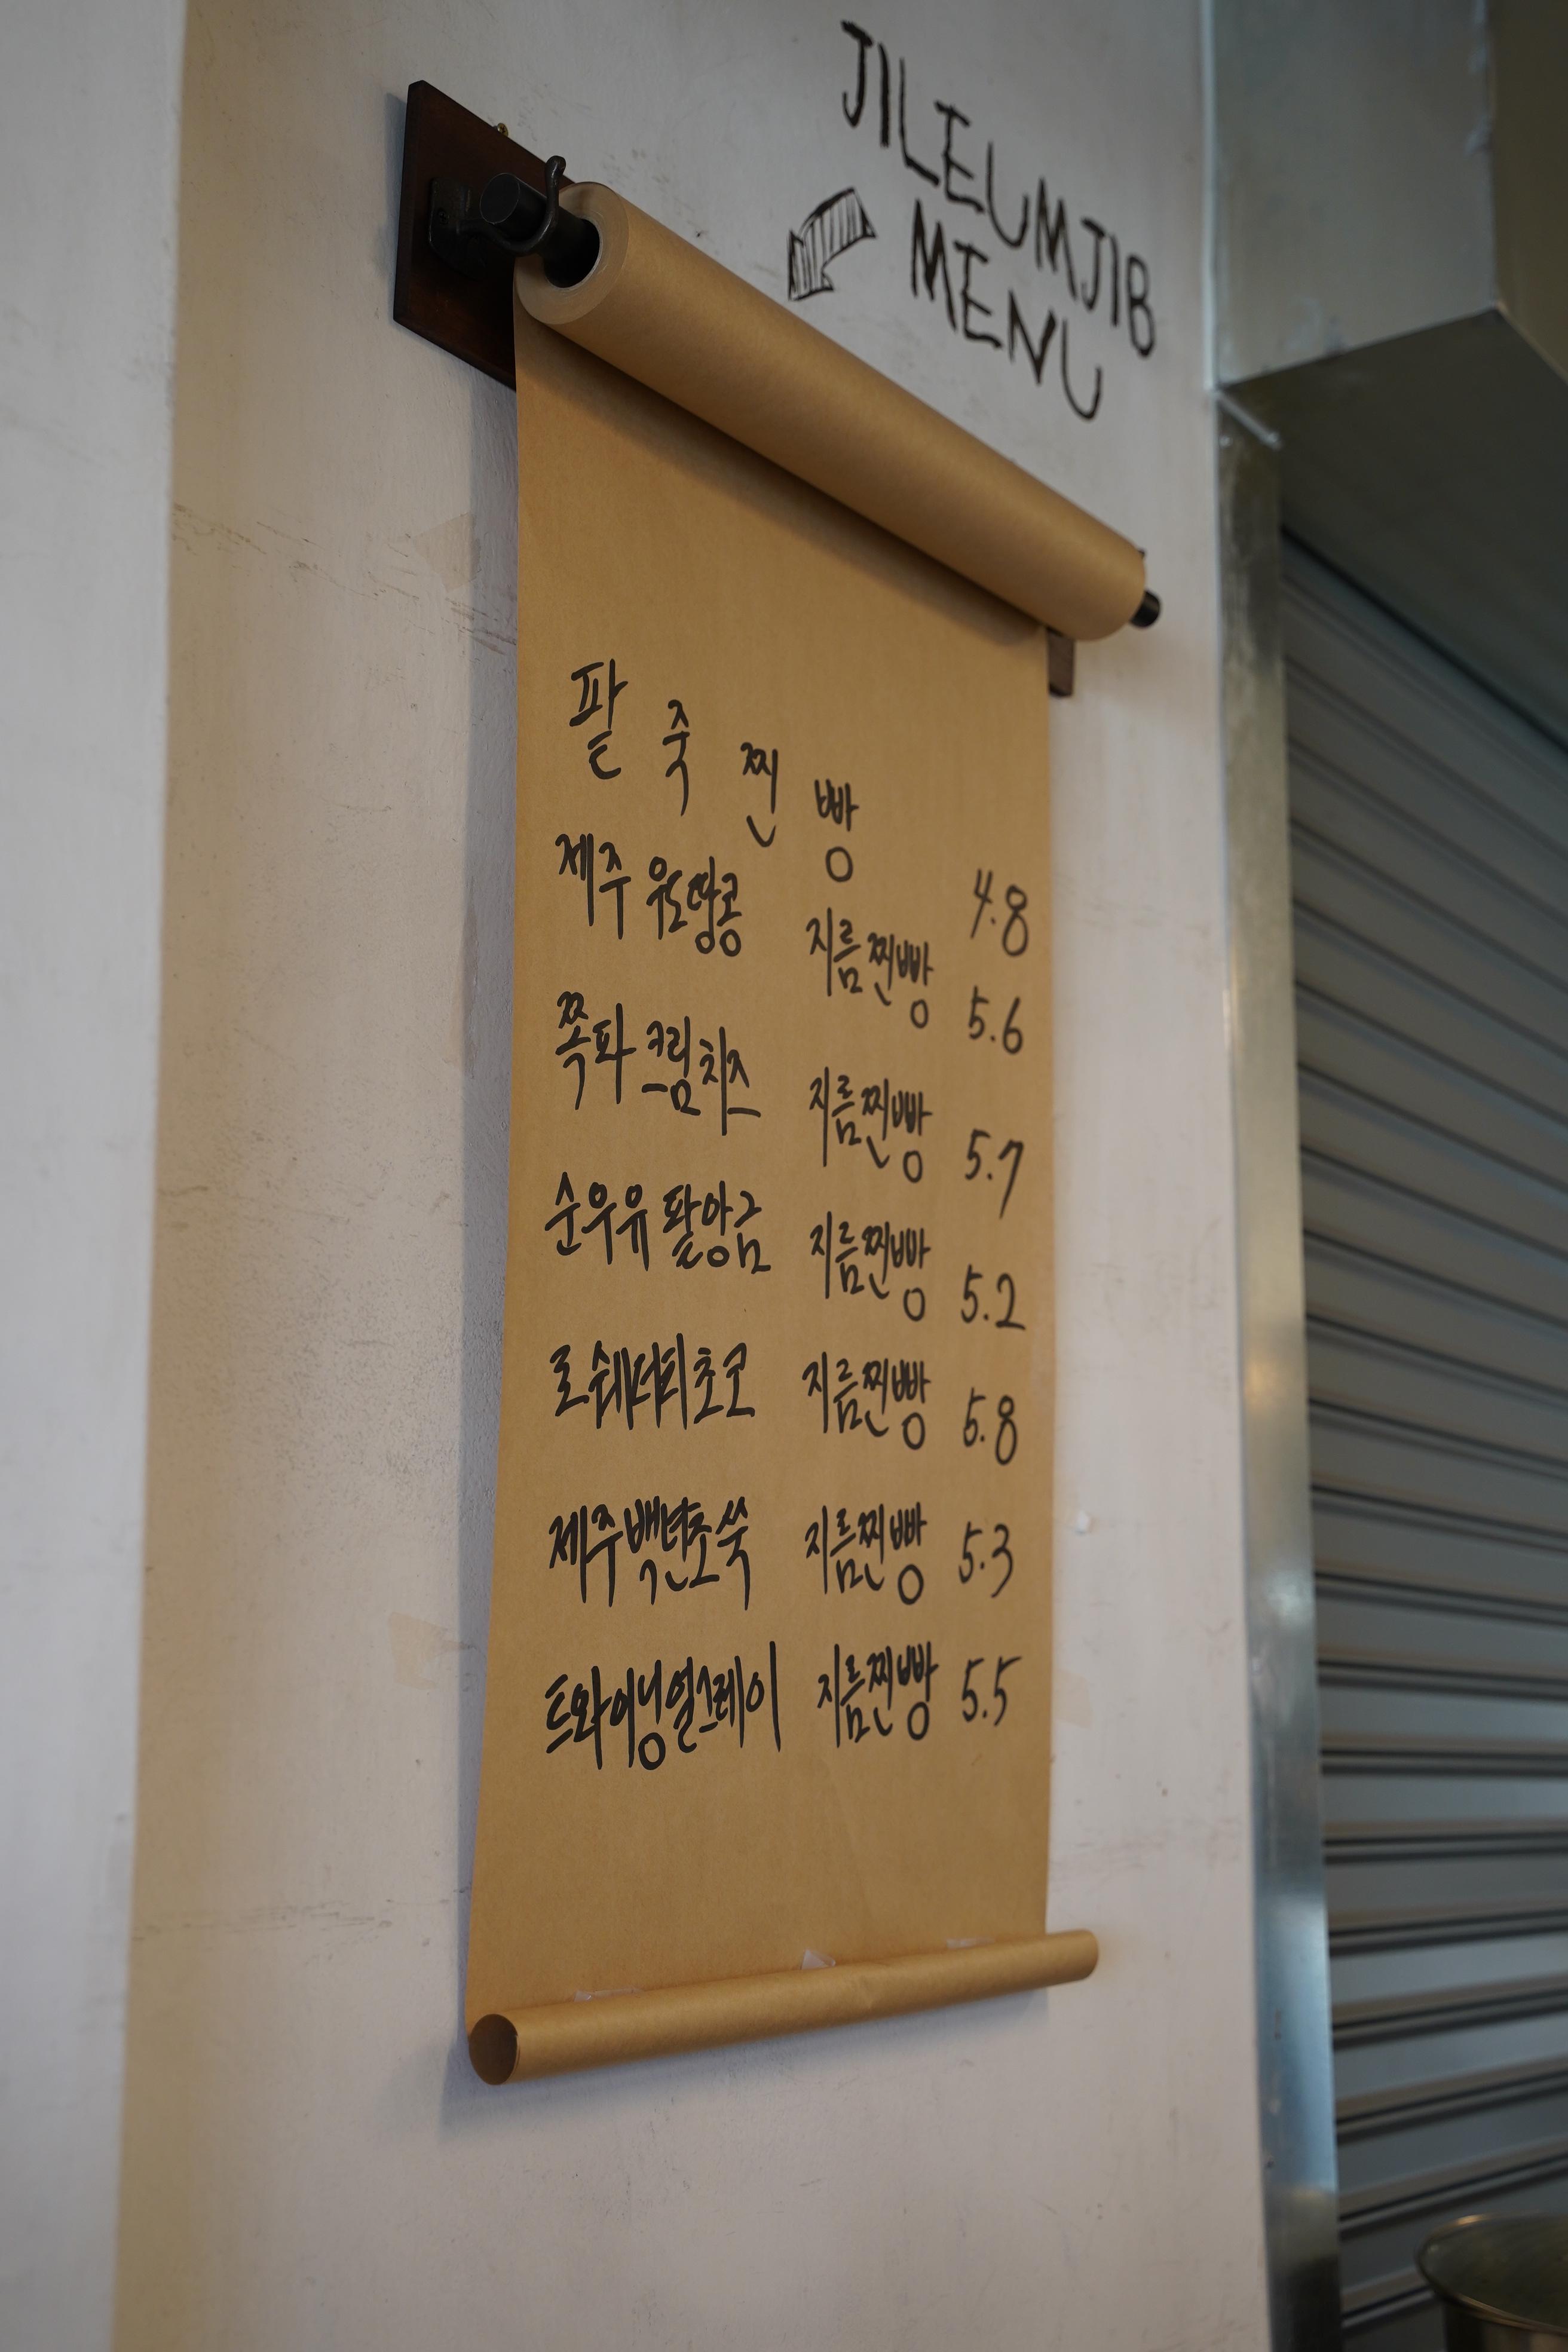 JILEUMJIB
MENU
팥죽찐빵 4.8
제주 우도땅콩 지름찐빵 5.6
쪽파 크림치즈 지름찐빵 5.7
순우유 팥앙금 지름찐빵 5.2
로쉐더티초코 지름찐빵 5.8
제주백년초쑥 지름찐빵 5.3
트와이닝얼그레이 지름찐빵 5.5